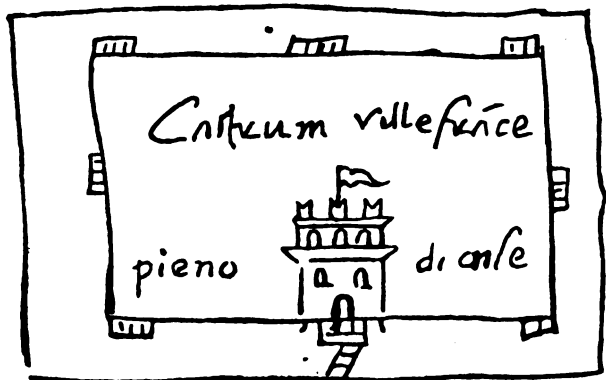 Castrum villefrāce
pieno di case